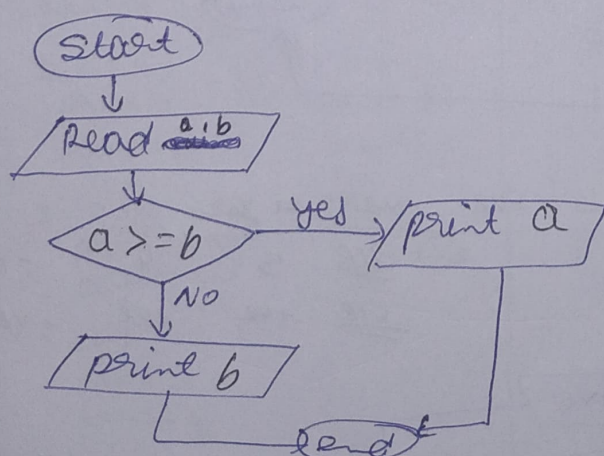 Start
Read a, b
a >= b
yes
print a
NO
print b
end